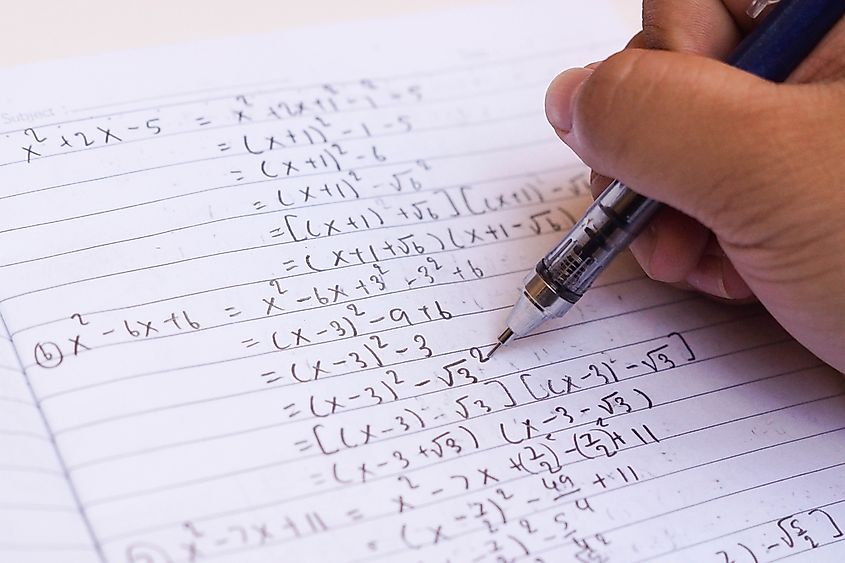 Subject :
x² + 2x - 5 = x² + 2x + 1² - 1² - 5
= (x+1)² - 1 - 5
= (x+1)² - 6
= (x+1)² - √6²
= [(x+1) + √6] [(x+1) - √6
= (x+1+√6) (x+1-√6)
(b) x² - 6x + 6 = x² - 6x + 3² - 3² + 6
= (x-3)² - 9 + 6
= (x-3)² - 3
= (x-3)² - √3²
= [(x-3) - √3] [(x-3) - √3]
= (x-3+√3) (x-3-√3)
x² - 7x + 11 = x² - 7x + (7/2)² - (7/2)² + 11
= (x - 7/2)² - 49/4 + 11
7/2)² - 5/4
) - √5/2]